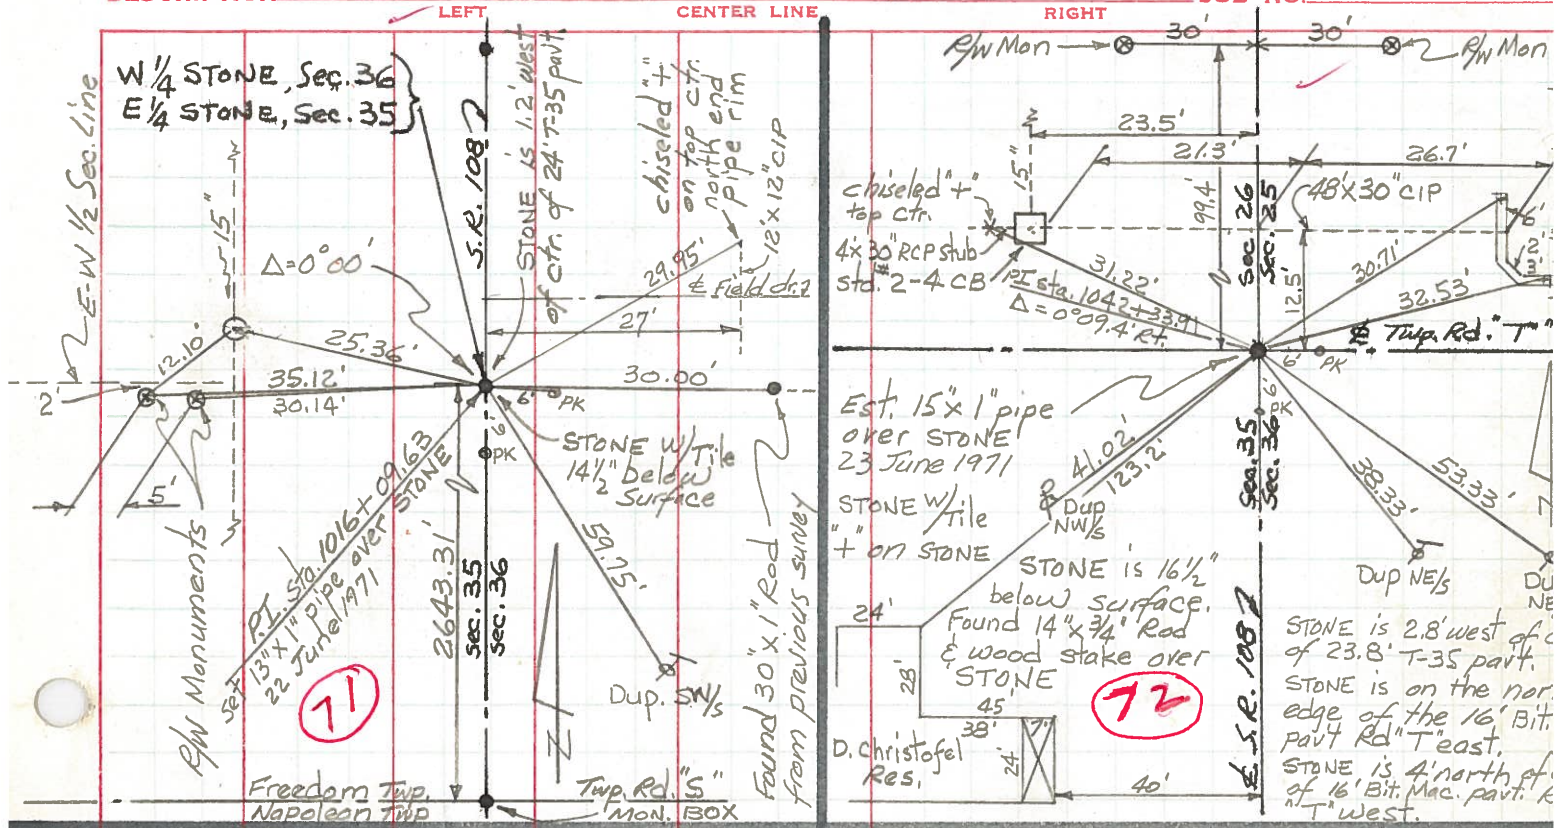 LEFT
CENTER LINE
RIGHT
W 1/4 STONE, Sec. 36
E 1/4 STONE, Sec. 35
E-W 1/2 Sec. Line
15"
Δ=0°00'
S.R. 108
STONE is 1.2' West
of ctr. of 24' T-35 pavt
chiseled "+"
on top ctr.
north end
pipe rim
12'x12" CIP
29.95'
℄ Field dr.
27'
12.10'
25.36'
35.12'
30.14'
30.00'
2'
5'
6'
PK
6'
PK
STONE W/Tile
14 1/2" below
Surface
R/W Monuments
P.I. Sta. 1016+09.63
Set 13"x1" pipe over STONE
22 June 1971
2643.31'
Sec. 35
Sec. 36
59.75'
Dup. SW/s
Found 30"x1" Rod
from previous survey
71
N
Freedom Twp.
Napoleon Twp
Twp. Rd. "S"
MON. BOX
R/W Mon
30'
30'
R/W Mon
23.5'
21.3'
26.7'
15"
99.4'
Sec. 26
Sec. 25
48'x30" CIP
chiseled "+"
top ctr.
4'x30" RCP stub
std. #2-4 CB
31.22'
PI sta. 1042+33.91
Δ=0°09.4' Rt.
12.5'
30.71'
32.53'
6'
2'
3'
℄ Twp. Rd. "T"
6'
PK
6'
PK
Est. 15"x1" pipe
over STONE
23 June 1971
STONE W/Tile
"+" on STONE
41.02'
123.2'
Dup
NW/s
Sec. 35
Sec. 36
38.33'
53.33'
Dup NE/s
N
STONE is 16 1/2"
below surface.
Found 14"x3/4" Rod
& wood stake over
STONE
24'
28'
45'
38'
7'
24'
D. Christofel
Res.
40'
72
℄ S.R. 108
STONE is 2.8' west of
of 23.8' T-35 pavt.
STONE is on the
edge of the 16' Bit.
pavt Rd "T" east.
STONE is 4' north of
of 16' Bit. Mac. pavt.
"T" west.